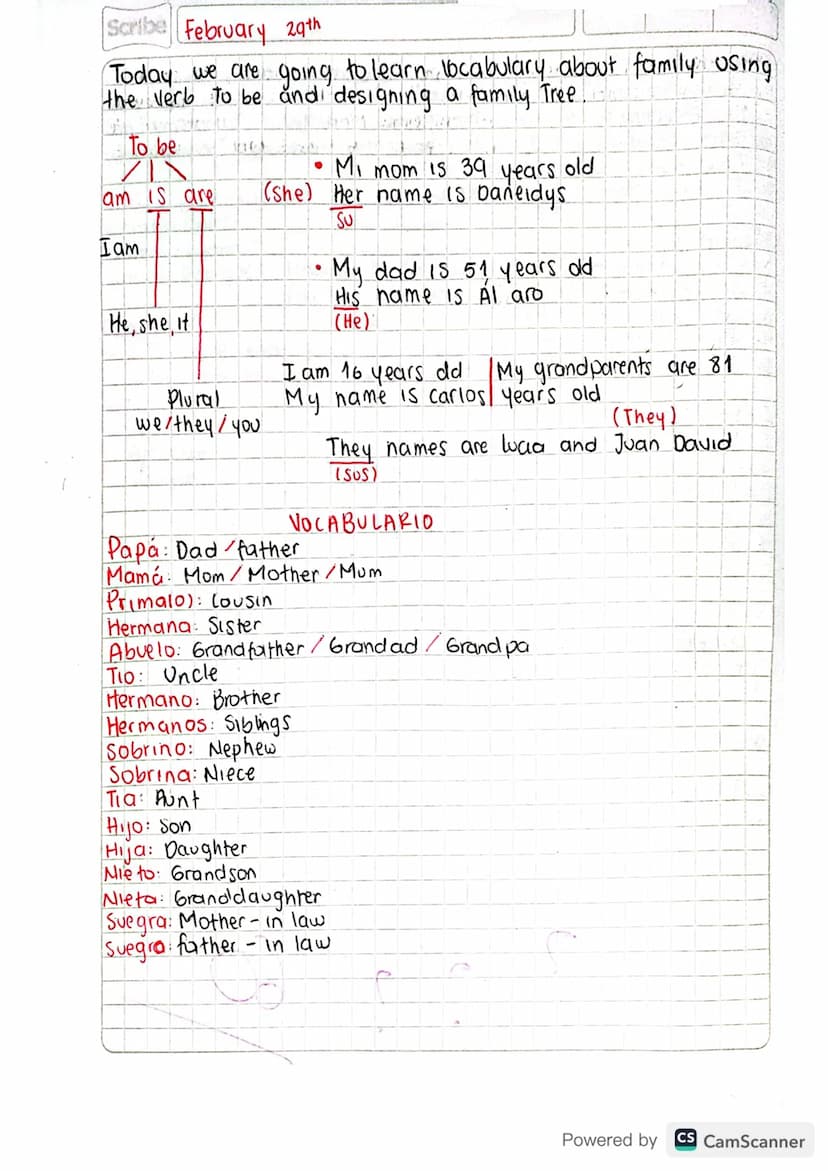 Scribe
February 29th
Today we are going to learn vocabulary about family using
the verb to be and designing a family Tree.
To be
am is are
I am
He, she, it
Plural
we/they/you
• Mi mom is 39 years old
(She) Her name is Daneidys
Su
• My dad is 51 years old
His name is Ál aro
(He)
I am 16 years old
My name is Carlos
My grandparents are 81
years old
(They)
They names are Lucia and Juan David
(sus)
VOCABULARIO
Papá: Dad / father
Mamá: Mom / Mother / Mum
Prima(o): Cousin
Hermana: Sister
Abuelo: Grandfather / Grandad / Grandpa
Tio: Uncle
Hermano: Brother
Hermanos: Siblings
Sobrino: Nephew
Sobrina: Niece
Tia: Aunt
Hijo: Son
Hija: Daughter
Nieto: Grandson
Nieta: Granddaughter
Suegra: Mother - in law
Suegro: father - in law
Powered by CS CamScanner